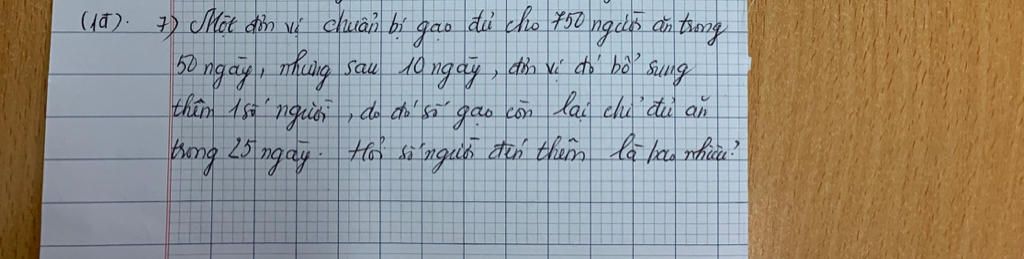 (1đ). 7) Một đơn vị chuẩn bị gạo đủ cho 750 người ăn trong
50 ngày, nhưng sau 10 ngày, đơn vị đó bổ sung
thêm 1 số người, do đó số gạo còn lại chỉ đủ ăn
trong 25 ngày. Hỏi số người đến thêm là bao nhiêu?